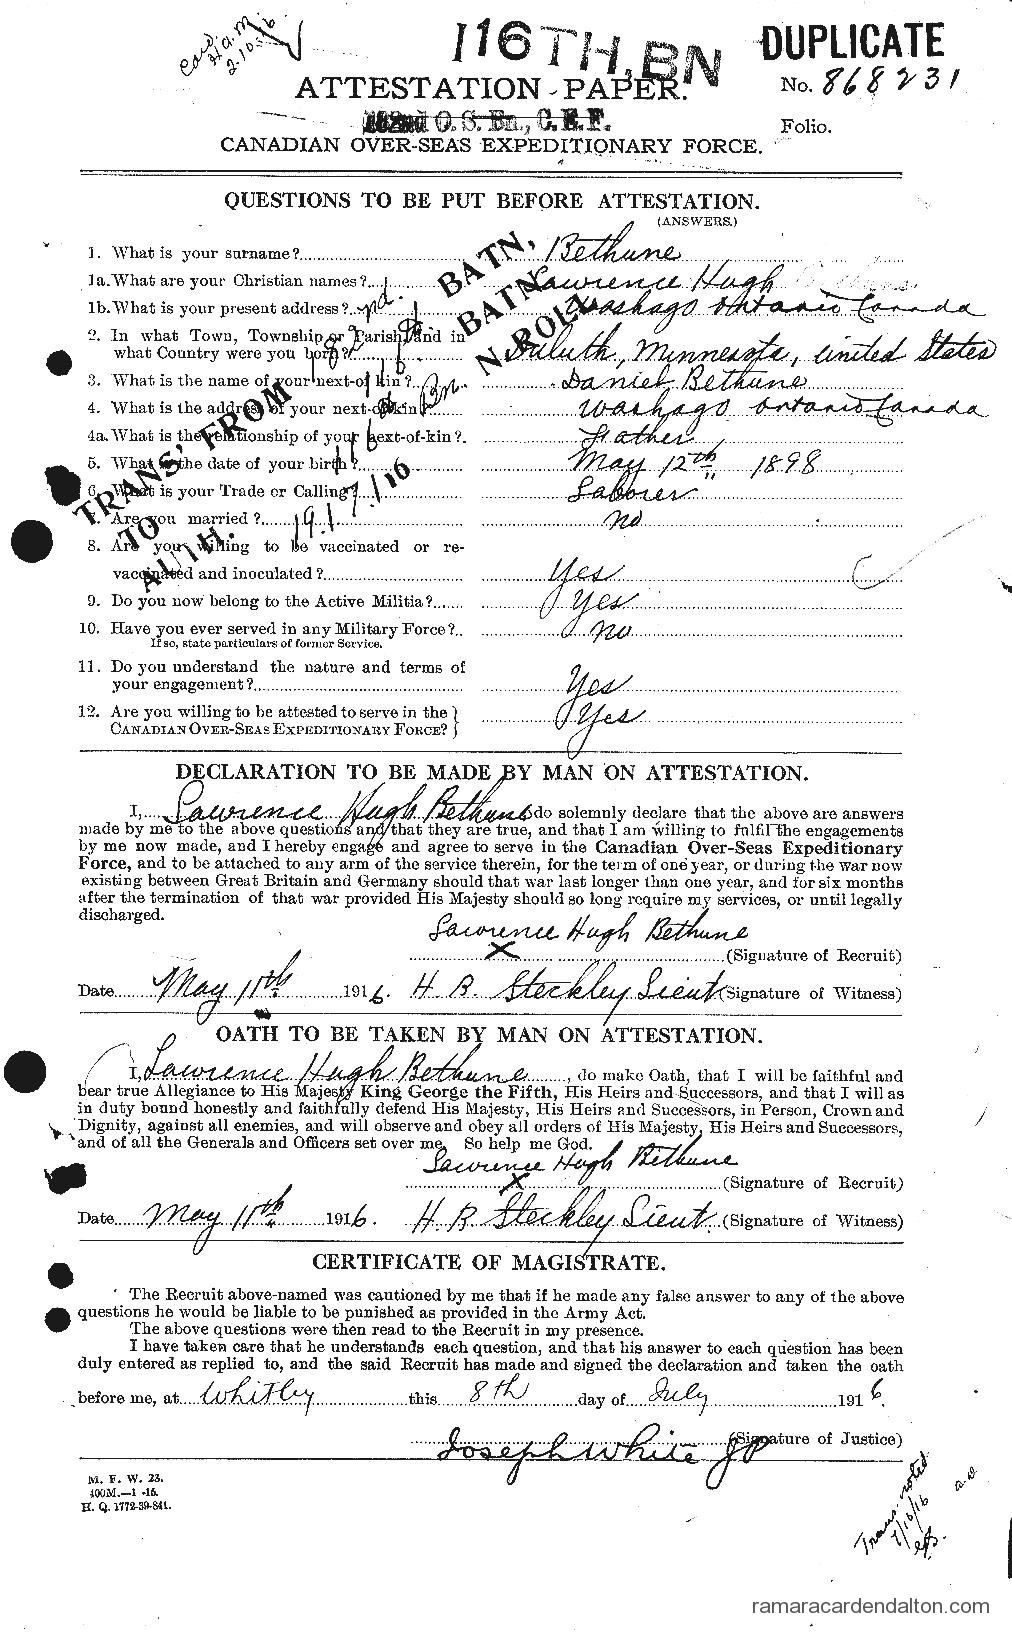 116TH, BN
DUPLICATE
Card.
H.a.M
2-10-16
ATTESTATION PAPER.
No. 868231
182nd O. S. Bn., C. E. F.
Folio.
CANADIAN OVER-SEAS EXPEDITIONARY FORCE.
QUESTIONS TO BE PUT BEFORE ATTESTATION.
(ANSWERS.)
1. What is your surname? Bethune
1a. What are your Christian names? Lawrence Hugh
1b. What is your present address? Washago Ontario Canada
2. In what Town, Township or Parish, and in
what Country were you born? Duluth, Minnesota, United States
3. What is the name of your next-of kin? Daniel Bethune
4. What is the address of your next-of-kin? Washago Ontario Canada
4a. What is the relationship of your next-of-kin? Father
5. What is the date of your birth? May 12th, 1898
6. What is your Trade or Calling? Laborer
7. Are you married? no
8. Are you willing to be vaccinated or re-
vaccinated and inoculated? Yes
9. Do you now belong to the Active Militia? Yes
10. Have you ever served in any Military Force? no
If so, state particulars of former Service.
11. Do you understand the nature and terms of
your engagement? Yes
12. Are you willing to be attested to serve in the
CANADIAN OVER-SEAS EXPEDITIONARY FORCE? Yes
TRANS' FROM 182nd. BATN,
TO 116th BATN
AUTH. 116th Bn. N ROLL
19.1.7./16
DECLARATION TO BE MADE BY MAN ON ATTESTATION.
I, Lawrence Hugh Bethune do solemnly declare that the above are answers
made by me to the above questions and that they are true, and that I am willing to fulfil the engagements
by me now made, and I hereby engage and agree to serve in the Canadian Over-Seas Expeditionary
Force, and to be attached to any arm of the service therein, for the term of one year, or during the war now
existing between Great Britain and Germany should that war last longer than one year, and for six months
after the termination of that war provided His Majesty should so long require my services, or until legally
discharged.
Lawrence Hugh Bethune
X (Signature of Recruit)
Date May 11th 1916. H. R. Steckley Lieut (Signature of Witness)
OATH TO BE TAKEN BY MAN ON ATTESTATION.
I, Lawrence Hugh Bethune, do make Oath, that I will be faithful and
bear true Allegiance to His Majesty King George the Fifth, His Heirs and Successors, and that I will as
in duty bound honestly and faithfully defend His Majesty, His Heirs and Successors, in Person, Crown and
Dignity, against all enemies, and will observe and obey all orders of His Majesty, His Heirs and Successors,
and of all the Generals and Officers set over me. So help me God.
Lawrence Hugh Bethune
X (Signature of Recruit)
Date May 11th 1916. H. R. Steckley Lieut. (Signature of Witness)
CERTIFICATE OF MAGISTRATE.
The Recruit above-named was cautioned by me that if he made any false answer to any of the above
questions he would be liable to be punished as provided in the Army Act.
The above questions were then read to the Recruit in my presence.
I have taken care that he understands each question, and that his answer to each question has been
duly entered as replied to, and the said Recruit has made and signed the declaration and taken the oath
before me, at Whitby this 8th day of July 1916.
Joseph White JP (Signature of Justice)
M. F. W. 23.
400M.—1 -16.
H. Q. 1772-39-841.
Trans. noted
7/10/16
ramaracardendalton.com